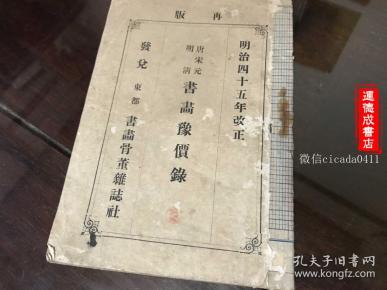 再版
明治四十五年改正
唐宋元
明清
書畫豫價錄
發兌 東都 書畫骨董雜誌社
運德成書店
微信cicada0411
孔夫子旧书网
www.kongfz.com